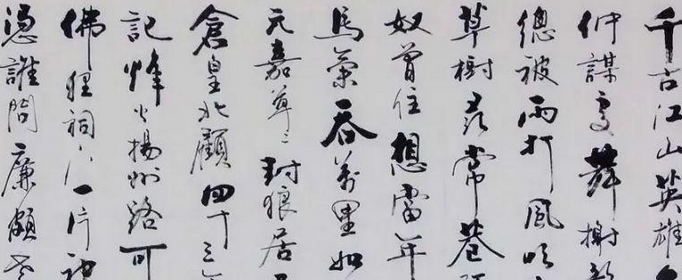 千古江山英雄
仲謀處舞榭歌
總被雨打風吹
草樹尋常巷
奴曾住想當年
馬氣吞萬里如
元嘉草〻封狼居
倉皇北顧四十三年
記烽火揚州路可
佛狸祠下一片神
憑誰問廉頗老